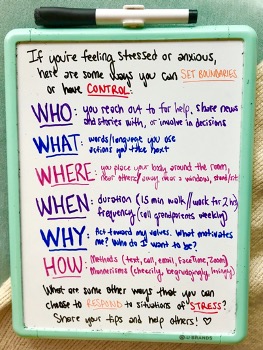 If you're feeling stressed or anxious,
here are some ways you can SET BOUNDARIES
or have CONTROL:
WHO: you reach out to for help, share news
and stories with, or involve in decisions
WHAT: words/language you use
actions you take next
WHERE: you place your body around the room,
near others/away near a window, stand/sit
WHEN: duration (15 min walk//work for 2 hrs)
frequency (call grandparents weekly)
WHY: Act toward my values. What motivates
me? Who do I want to be?
HOW: Methods (text, call, email, FaceTime, Zoom)
Mannerisms (cheerily, begrudgingly, lovingly)
What are some other ways that you can
choose to RESPOND to situations of "STRESS"?
Share your tips and help others! ♡
U BRANDS